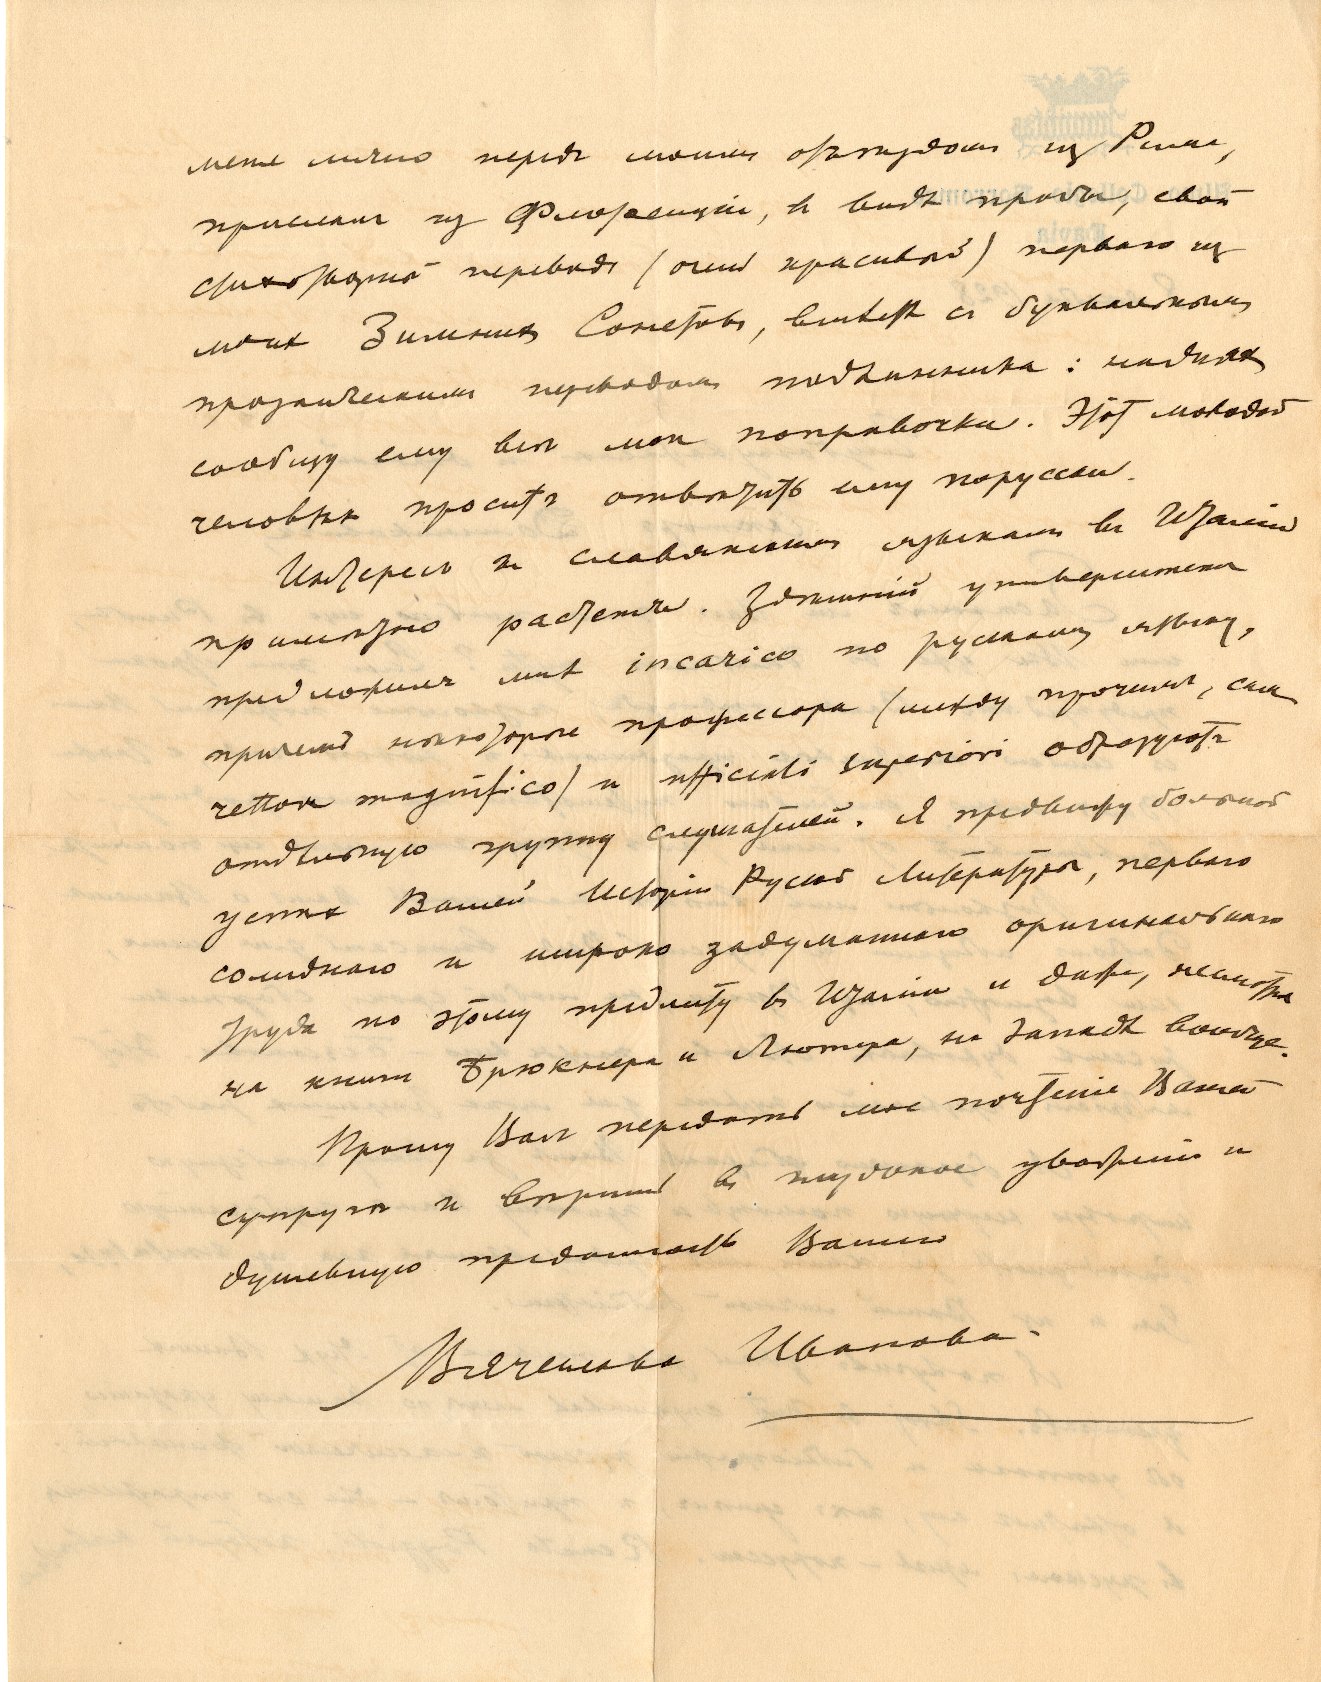 меня лично передъ моимъ отъѣздомъ изъ Рима,
прислалъ изъ Флоренціи, въ видѣ пробы, свой
стихотворный переводъ (очень красивый) перваго изъ
моихъ Зимнихъ Сонетовъ, вмѣстѣ съ буквальнымъ
прозаическимъ переводомъ подлинника: на дняхъ
сообщу ему всѣ мои поправочки. Этотъ молодой
человѣкъ проситъ отвѣтить ему порусски.
Интересъ къ славянскимъ языкамъ въ Италіи
примѣтно растетъ. Здѣшній университетъ
предложилъ мнѣ incarico по русскому языку,
причемъ нѣкоторые профессора (между прочимъ, самъ
rettore magnifico) и ufficiali superiori образуютъ
отдѣльную группу слушателей. Я предвижу большой
успѣхъ Вашей Исторіи Русской Литературы, перваго
солиднаго и широко задуманнаго оригинальнаго
труда по этому предмету въ Италіи и даже, несмотря
на книги Брюкнера и Лютера, на Западѣ вообще.
Прошу Васъ передать мое почтеніе Вашей
супругѣ и вѣрить въ глубокое уваженіе и
душевную преданность Вашего
Вячеслава Иванова.